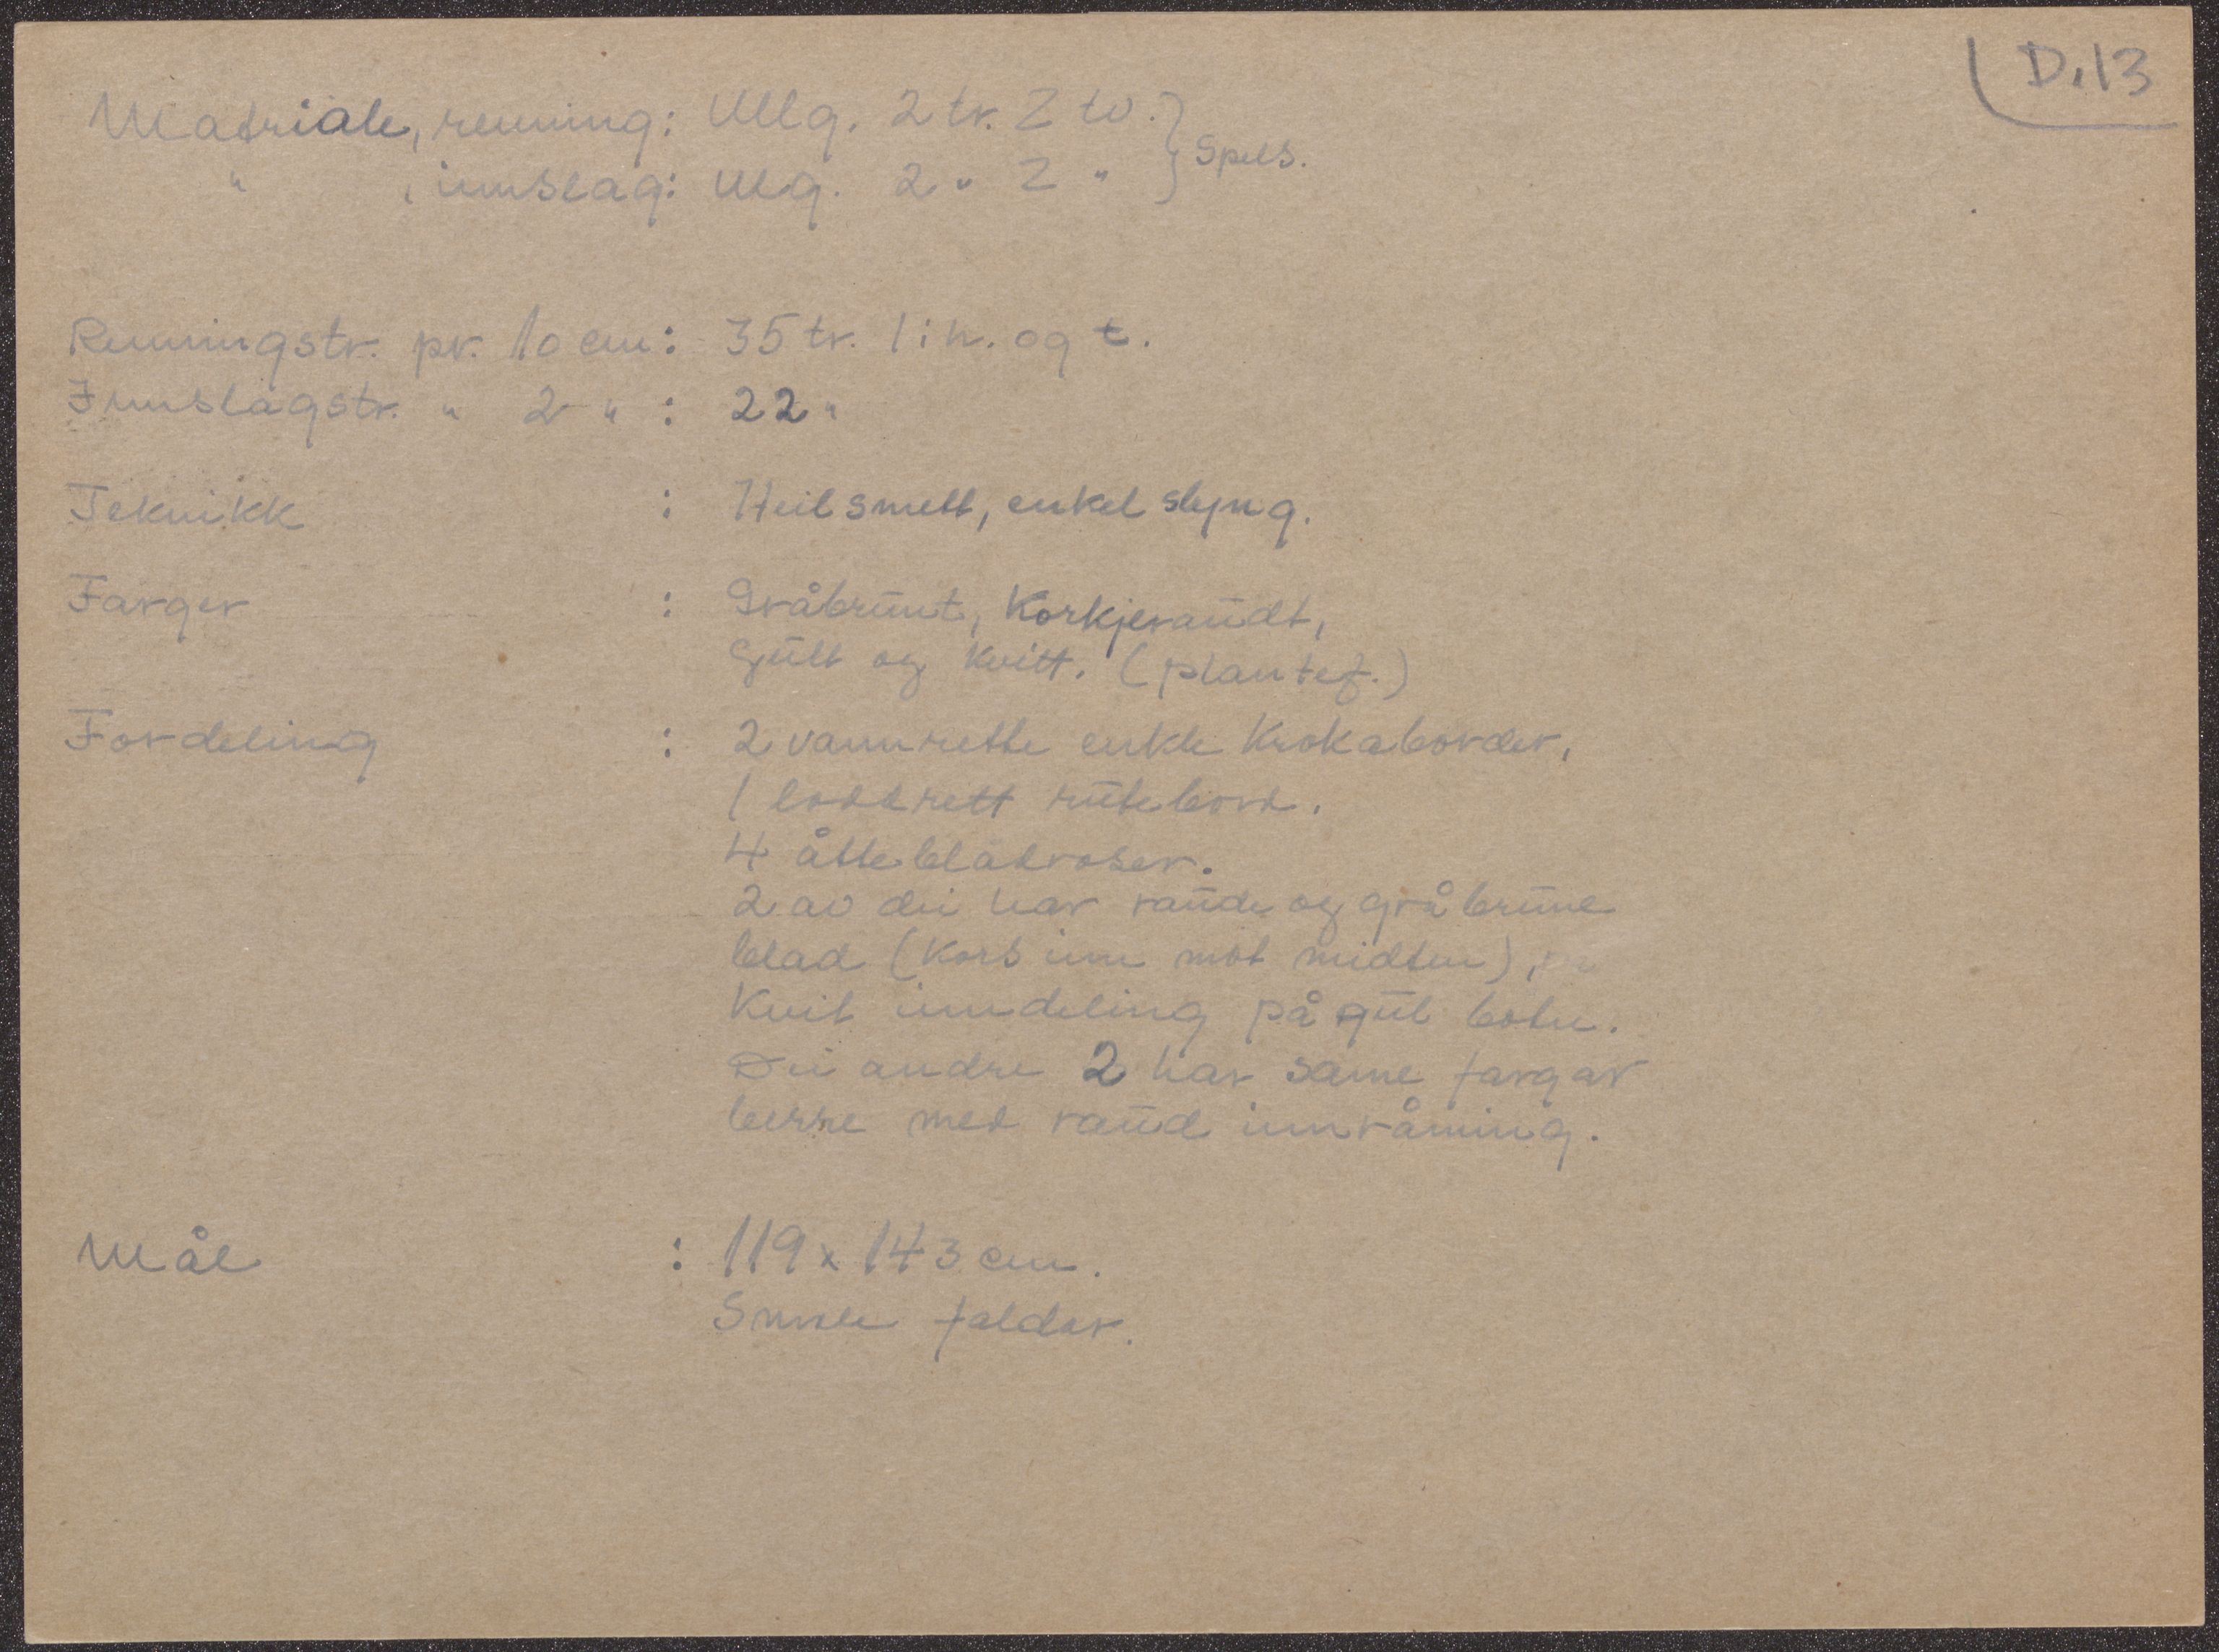 D.13
Matriale, renning: Ullg. 2 tr. Z tv. } Spels.
" , innslag: Ullg. 2 " Z "
Renningstr. pr. 10 cm: 35 tr. 1 i h. og t.
Innslagstr. " 2 " : 22 "
Teknikk : Heilsmett, enkel slyng.
Farger : Gråbrunt, Korkjeraudt,
Gult og kvitt. (plantef.)
Fordeling : 2 vannrette enkle Krokaborder,
1 loddrett rutebord.
4 åttebladroser.
2 av dei har raude og gråbrune
blad (Kors inn mot midten),
Kvit inndeling på gul botn.
Dei andre 2 har same fargar
berre med raud innråming.
Mål : 119 x 143 cm.
Smale faldar.